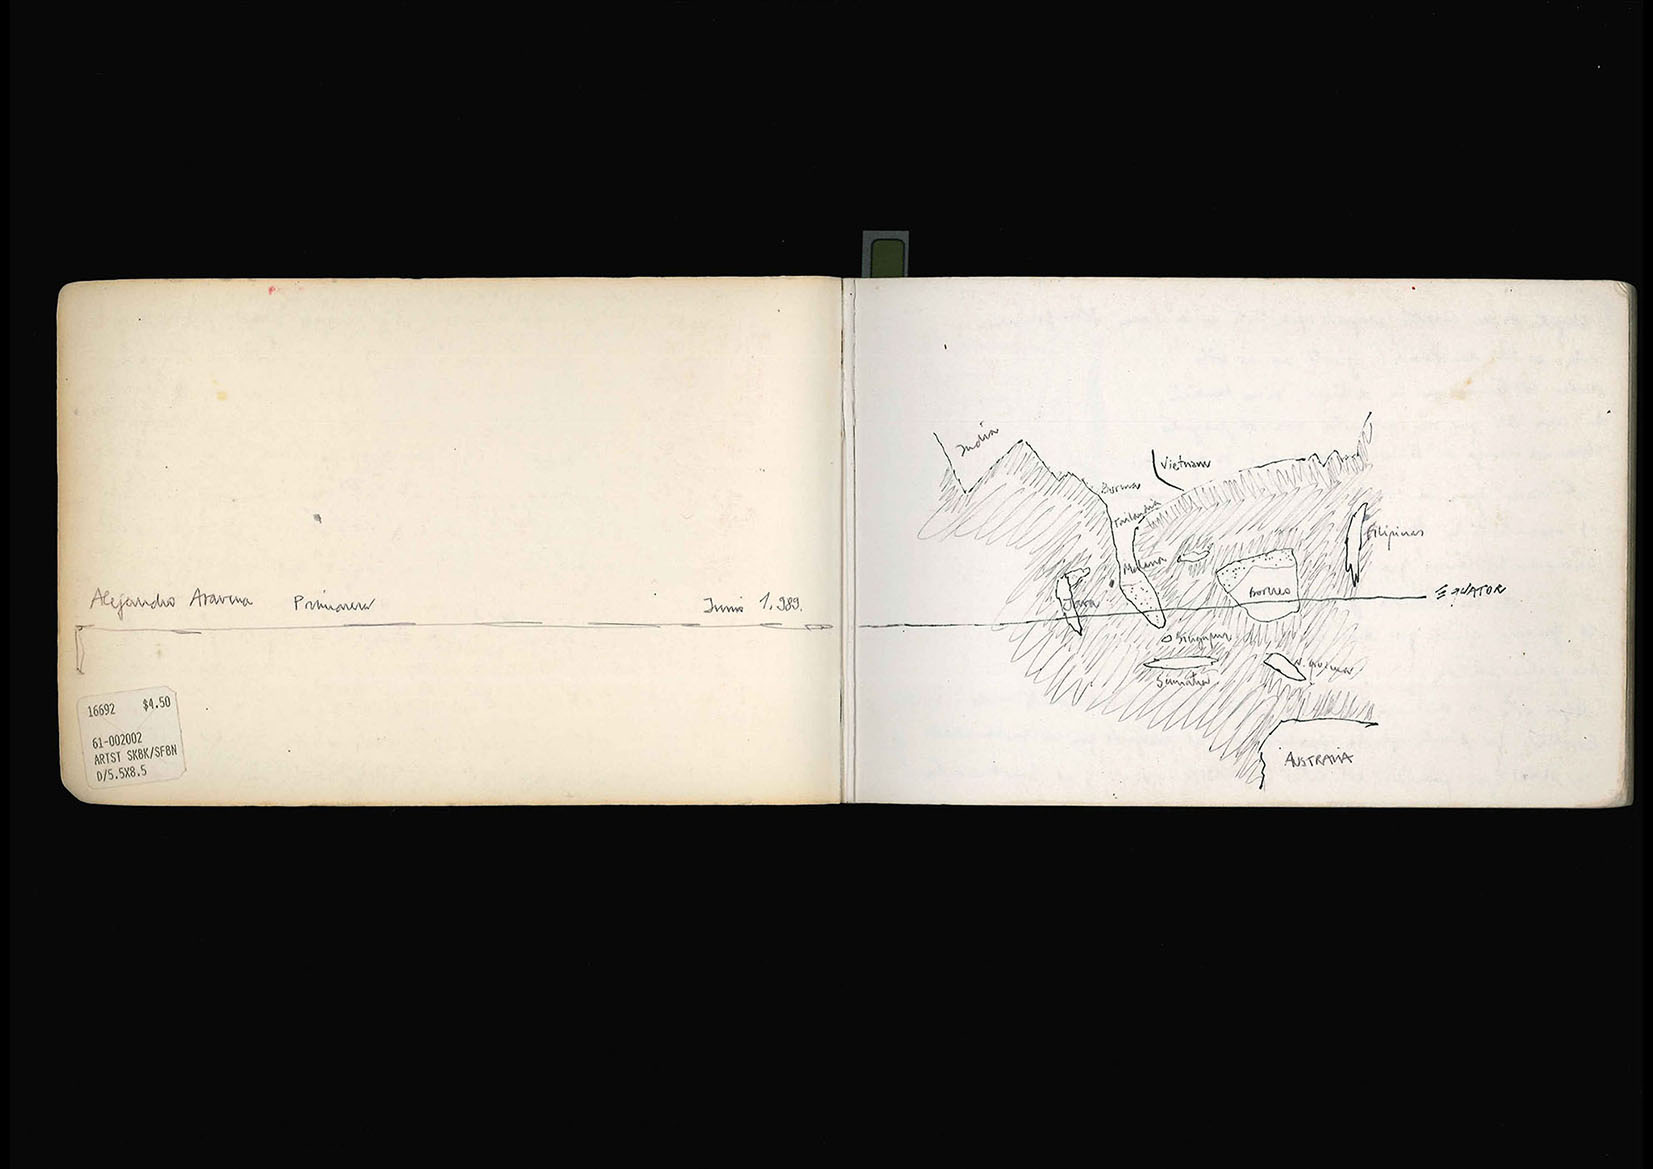 Alejandro Aravena Primavera Junio 1.989.
16692 $4.50
61-002002
ARTST SKBK/SFBN
D/5.5X8.5
India
Vietnam
Burma
Tailandia
Filipinas
Malasia
Borneo
EQUATOR
Java
Singapur
N. Guinea
Sumatra
AUSTRALIA